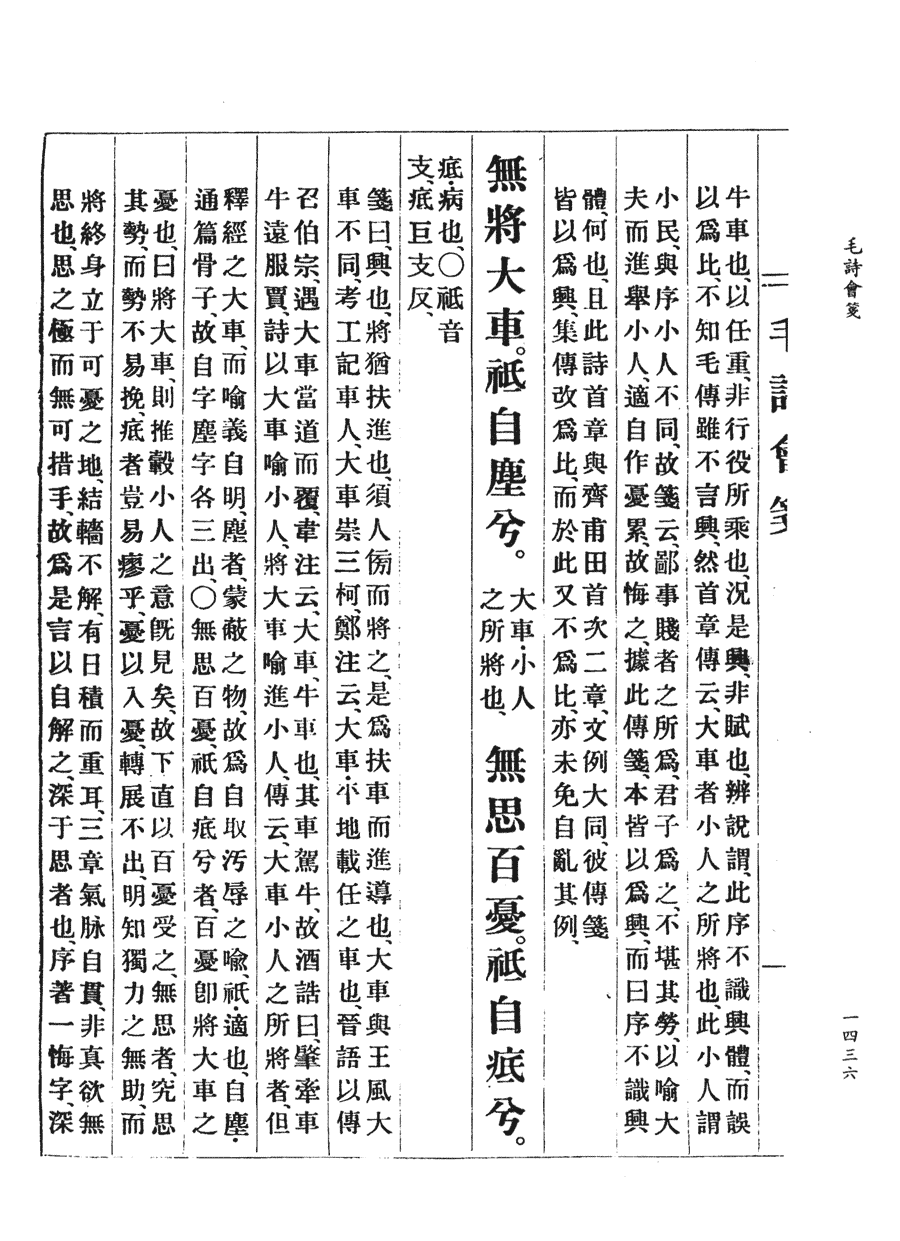 毛詩會箋
一四三六
毛詩會箋
牛車也、以任重、非行役所乘也、況是興、非賦也、辨說謂、此序不識興體、而誤
以爲比、不知毛傳雖不言興、然首章傳云、大車者小人之所將也、此小人謂
小民、與序小人不同、故箋云、鄙事賤者之所爲、君子爲之、不堪其勞、以喻大
夫而進舉小人、適自作憂累、故悔之、據此傳箋、本皆以爲興、而曰序不識興
體、何也、且此詩首章與齊甫田首次二章、文例大同、彼傳箋
皆以爲興、集傳改爲比、而於此又不爲比、亦未免自亂其例、
無將大車。祇自塵兮。
大車・小人
之所將也、
無思百憂。祇自疧兮。
疧・病也、〇祇音
支、疧巨支反、
箋曰、興也、將猶扶進也、須人傍而將之、是爲扶車而進導也、大車與王風大
車不同、考工記車人、大車崇三柯、鄭注云、大車・平地載任之車也、晉語以傳
召伯宗、遇大車當道而覆、韋注云、大車、牛車也、其車駕牛、故酒誥曰、肇牽車
牛遠服賈、詩以大車喻小人、將大車喻進小人、傳云、大車小人之所將者、但
釋經之大車、而喻義自明、塵者、蒙蔽之物、故爲自取汚辱之喩、祇・適也、自塵・
通篇骨子、故自字塵字各三出、〇無思百憂、祇自疧兮者、百憂卽將大車之
憂也、曰將大車、則推轂小人之意既見矣、故下直以百憂受之、無思者、究思
其勢、而勢不易挽、疧者豈易瘳乎、憂以入憂、轉展不出、明知獨力之無助、而
將終身立于可憂之地、結轖不解、有日積而重耳、三章氣脉自貫、非真欲無
思也、思之極而無可措手、故爲是言以自解之、深于思者也、序著一悔字、深